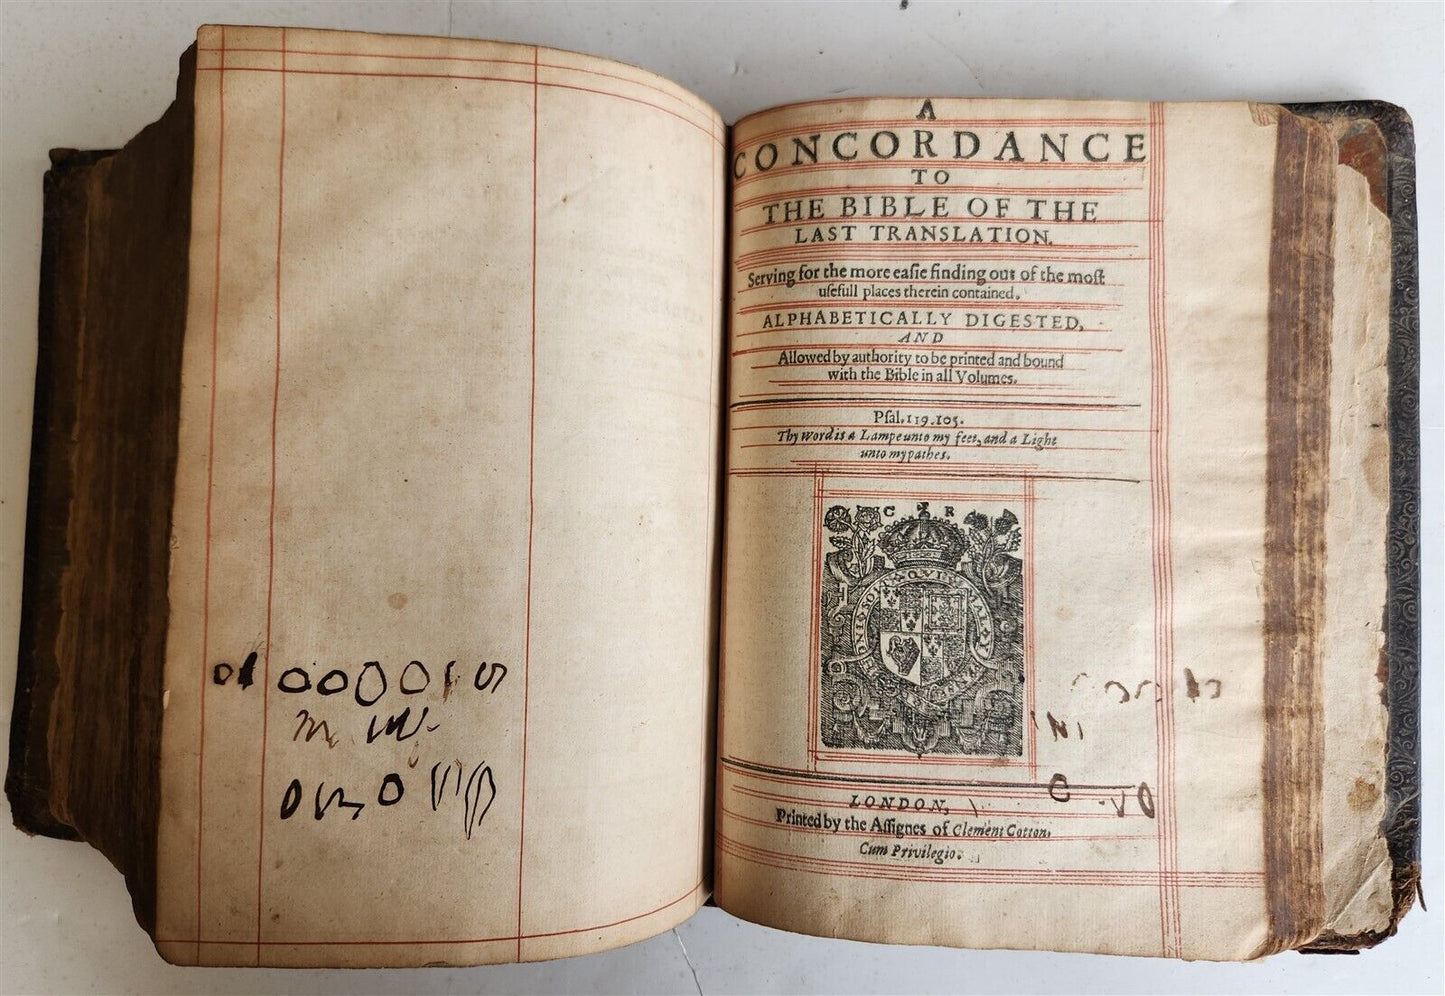 A
CONCORDANCE
TO
THE BIBLE OF THE
LAST TRANSLATION.
Serving for the more eaſie finding out of the moſt
uſefull places therein contained.
ALPHABETICALLY DIGESTED,
AND
Allowed by authority to be printed and bound
with the Bible in all Volumes.
Pſal. 119. 105.
Thy Word is a Lampe unto my feet, and a Light
unto my pathes.
C R
LONDON,
Printed by the Aſſignes of Clement Cotton.
Cum Privilegio.